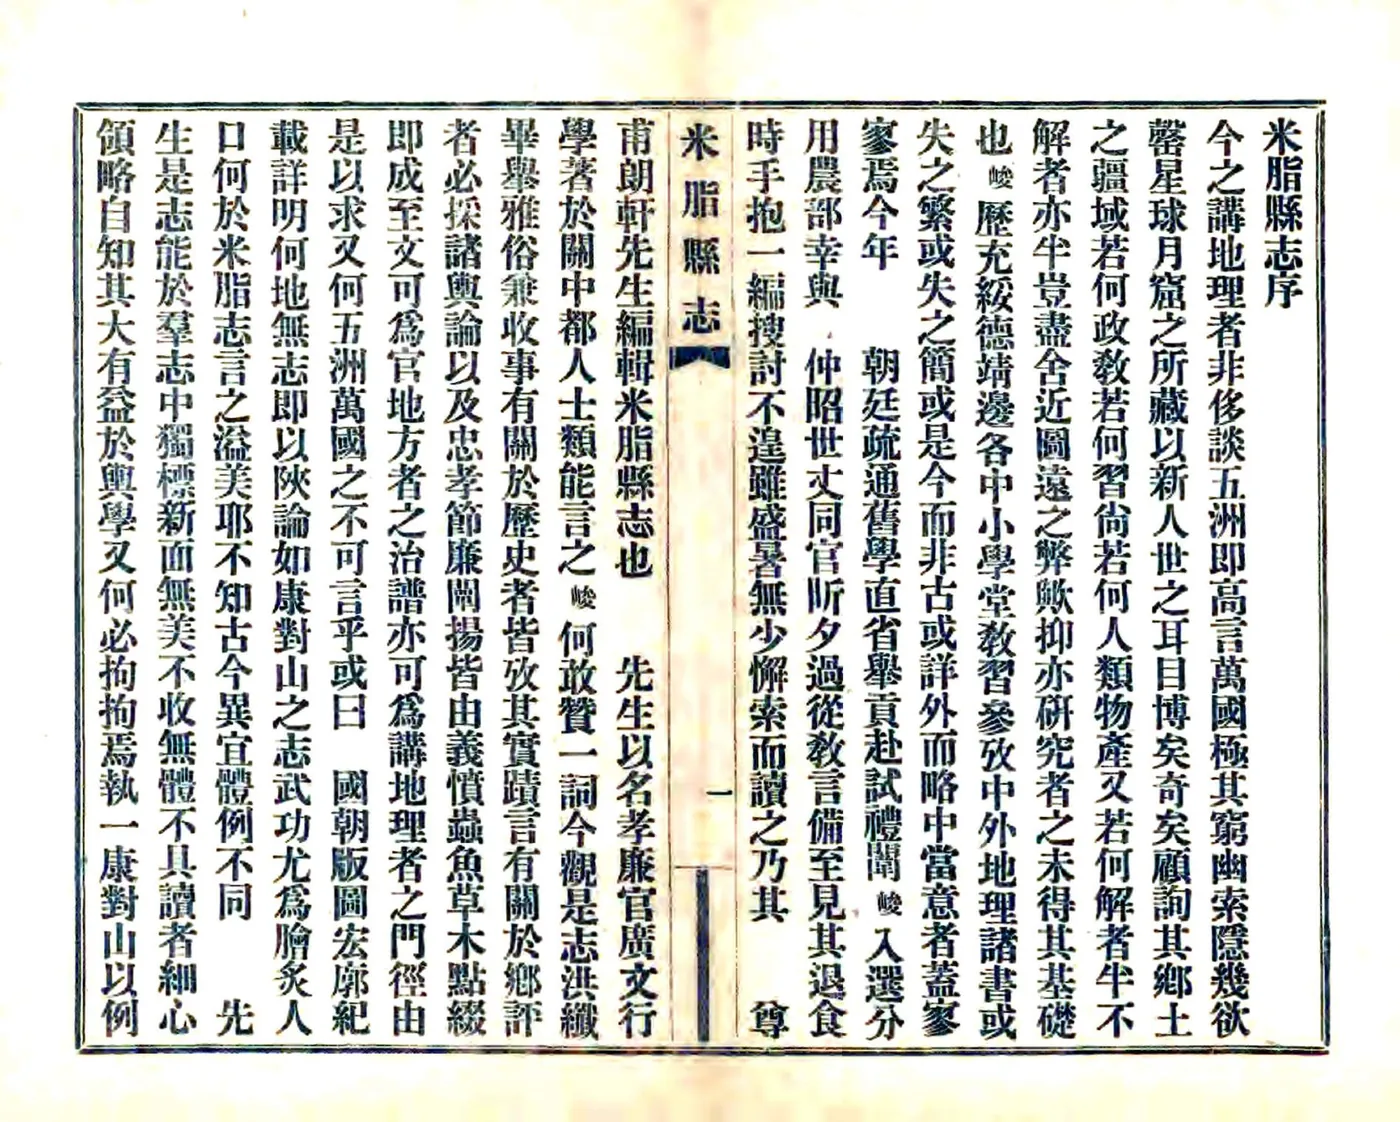 米脂縣志序
今之講地理者非侈談五洲即高言萬國極其窮幽索隱幾欲
罄星球月窟之所藏以新人世之耳目博矣奇矣顧詢其鄉土
之疆域若何政敎若何習尙若何人類物產又若何解者半不
解者亦半豈盡舍近圖遠之弊歟抑亦硏究者之未得其基礎
也峻歷充綏德靖邊各中小學堂敎習參攷中外地理諸書或
失之繁或失之簡或是今而非古或詳外而略中當意者蓋寥
寥焉今年 朝廷疏通舊學直省舉貢赴試禮闈峻入選分
用農部幸與 仲昭世丈同官昕夕過從敎言備至見其退食
時手抱一編搜討不遑雖盛暑無少懈索而讀之乃其 尊
米脂縣志
一
甫朗軒先生編輯米脂縣志也 先生以名孝廉官廣文行
學著於關中都人士類能言之峻何敢贊一詞今觀是志洪纖
畢舉雅俗兼收事有關於歷史者皆攷其實蹟言有關於鄉評
者必採諸輿論以及忠孝節廉闡揚皆由義憤蟲魚草木點綴
即成至文可爲官地方者之治譜亦可爲講地理者之門徑由
是以求又何五洲萬國之不可言乎或曰 國朝版圖宏廓紀
載詳明何地無志即以陝論如康對山之志武功尤爲膾炙人
口何於米脂志言之溢美耶不知古今異宜體例不同 先
生是志能於羣志中獨標新面無美不收無體不具讀者細心
領略自知其大有益於輿學又何必拘拘焉執一康對山以例